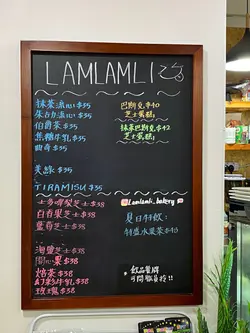 LAMLAMLI
抹茶流心 $35
朱古力流心 $35
伯爵茶 $35
焦糖牛乳 $35
曲奇 $35
美祿 $35
TIRAMISU $35
士多啤梨芝士 $38
白香果芝士 $38
藍莓芝士 $38
海鹽芝士 $38
開心果 $38
焙茶 $38
玫瑰 $38
巴斯克 $40
芝士蛋糕
抹茶巴斯克 $42
芝士蛋糕
lamlamli_bakery
夏日特飲:
特盛水果茶 $40
飲品餐牌
可問職員拎!!